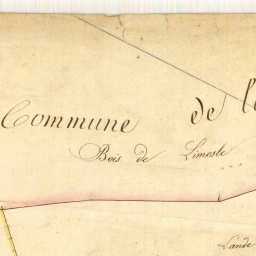 Commune de l
Bois de Limesle
Lande